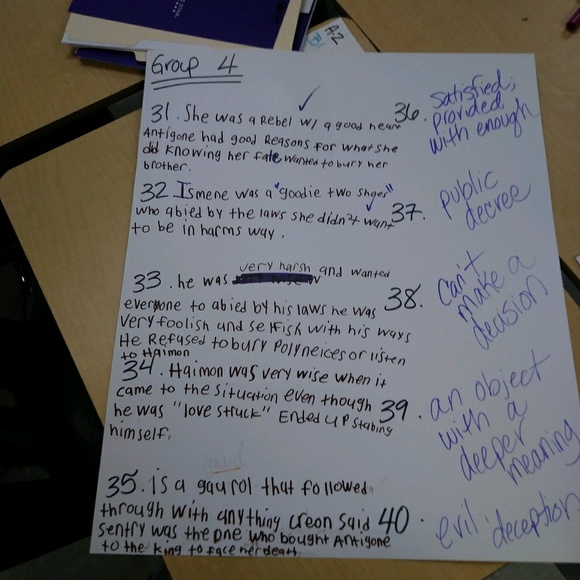 A2
Group 4
31. She was a Rebel w/ a good heart
Antigone had good Reasons for what she
did knowing her fate wanted to bury her
brother.
32 Ismene was a "goodie two shoes"
who abied by the laws she didn't want
to be in harms way.
33. he was very harsh and wanted
everyone to abied by his laws he was
very foolish and selfish with his ways
He Refused to bury Polyneices or listen
to Haimon
34. Haimon was very wise when it
came to the situation even though
he was "love struck" Ended up stabing
himself.
35. is a gaurol that followed
through with anything Creon said
sentry was the one who bought Antigone
to the king to face her death
36. satisfied;
provided
with enough
37. public
decree
38. can't
make a
decision
39. an object
with a
deeper
meaning
40. evil; deception